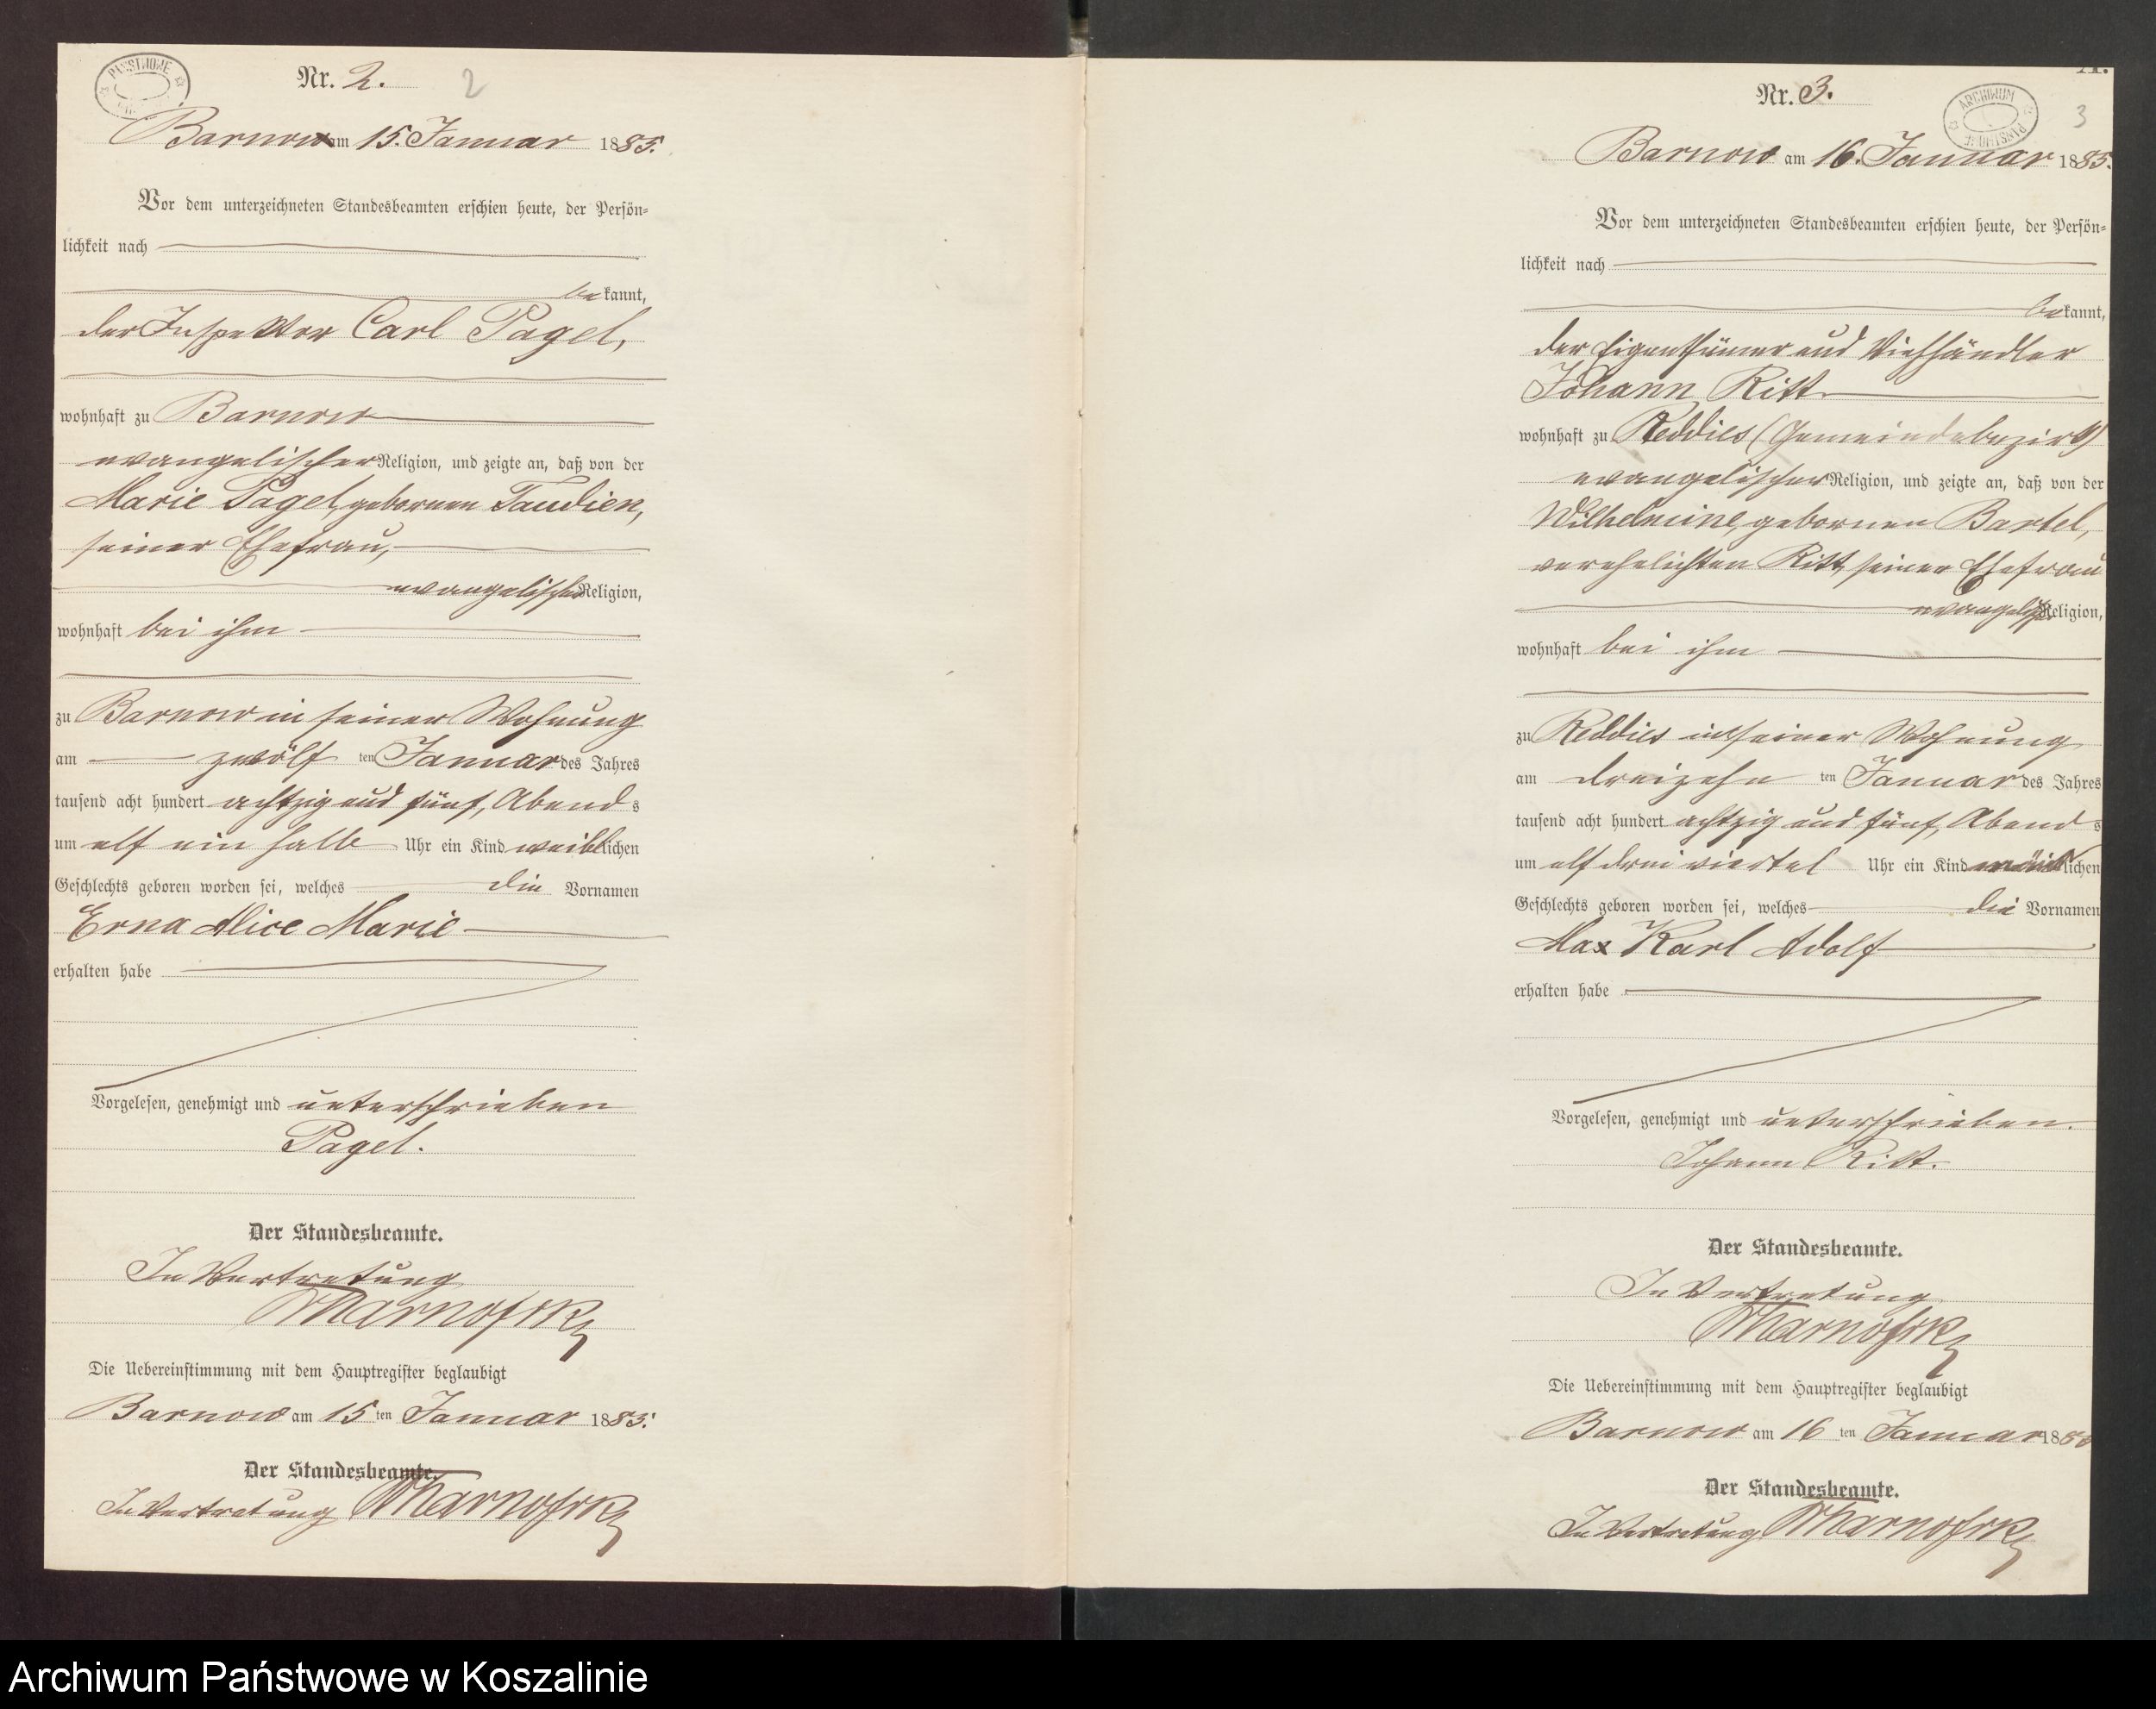 PAŃSTWOWE
Nr. 2.
2
Barnow am 15. Januar 1885.
Vor dem unterzeichneten Standesbeamten erschien heute, der Persön-
lichkeit nach
bekannt,
der Inspektor Carl Pagel,
wohnhaft zu Barnow
evangelischer Religion, und zeigte an, daß von der
Marie Pagel, gebornen Taudien,
seiner Ehefrau,
evangelischer Religion,
wohnhaft bei ihm
zu Barnow in seiner Wohnung
am zwölf ten Januar des Jahres
tausend acht hundert achtzig und fünf, Abends
um elf ein halb Uhr ein Kind weiblichen
Geschlechts geboren worden sei, welches die Vornamen
Erna Alice Marie
erhalten habe
Vorgelesen, genehmigt und unterschrieben
Pagel.
Der Standesbeamte.
In Vertretung
Die Uebereinstimmung mit dem Hauptregister beglaubigt
Barnow am 15 ten Januar 1885.
Der Standesbeamte.
In Vertretung
Nr. 3.
ARCHIWUM PAŃSTWOWE
3
Barnow am 16. Januar 1885.
Vor dem unterzeichneten Standesbeamten erschien heute, der Persön-
lichkeit nach
bekannt,
der Eigenthümer und Viehhändler
Johann Ritt
wohnhaft zu Reddies (Gemeindebezirk)
evangelischer Religion, und zeigte an, daß von der
Wilhelmine, gebornen Bartel,
verehelichten Ritt, seiner Ehefrau
evangelisch. Religion,
wohnhaft bei ihm
zu Reddies in seiner Wohnung
am dreizehn ten Januar des Jahres
tausend acht hundert achtzig und fünf, Abends
um elf drei viertel Uhr ein Kind männlichen
Geschlechts geboren worden sei, welches die Vornamen
Max Karl Adolf
erhalten habe
Vorgelesen, genehmigt und unterschrieben.
Johann Ritt.
Der Standesbeamte.
In Vertretung
Die Uebereinstimmung mit dem Hauptregister beglaubigt
Barnow am 16 ten Januar 1885
Der Standesbeamte.
In Vertretung
Archiwum Państwowe w Koszalinie